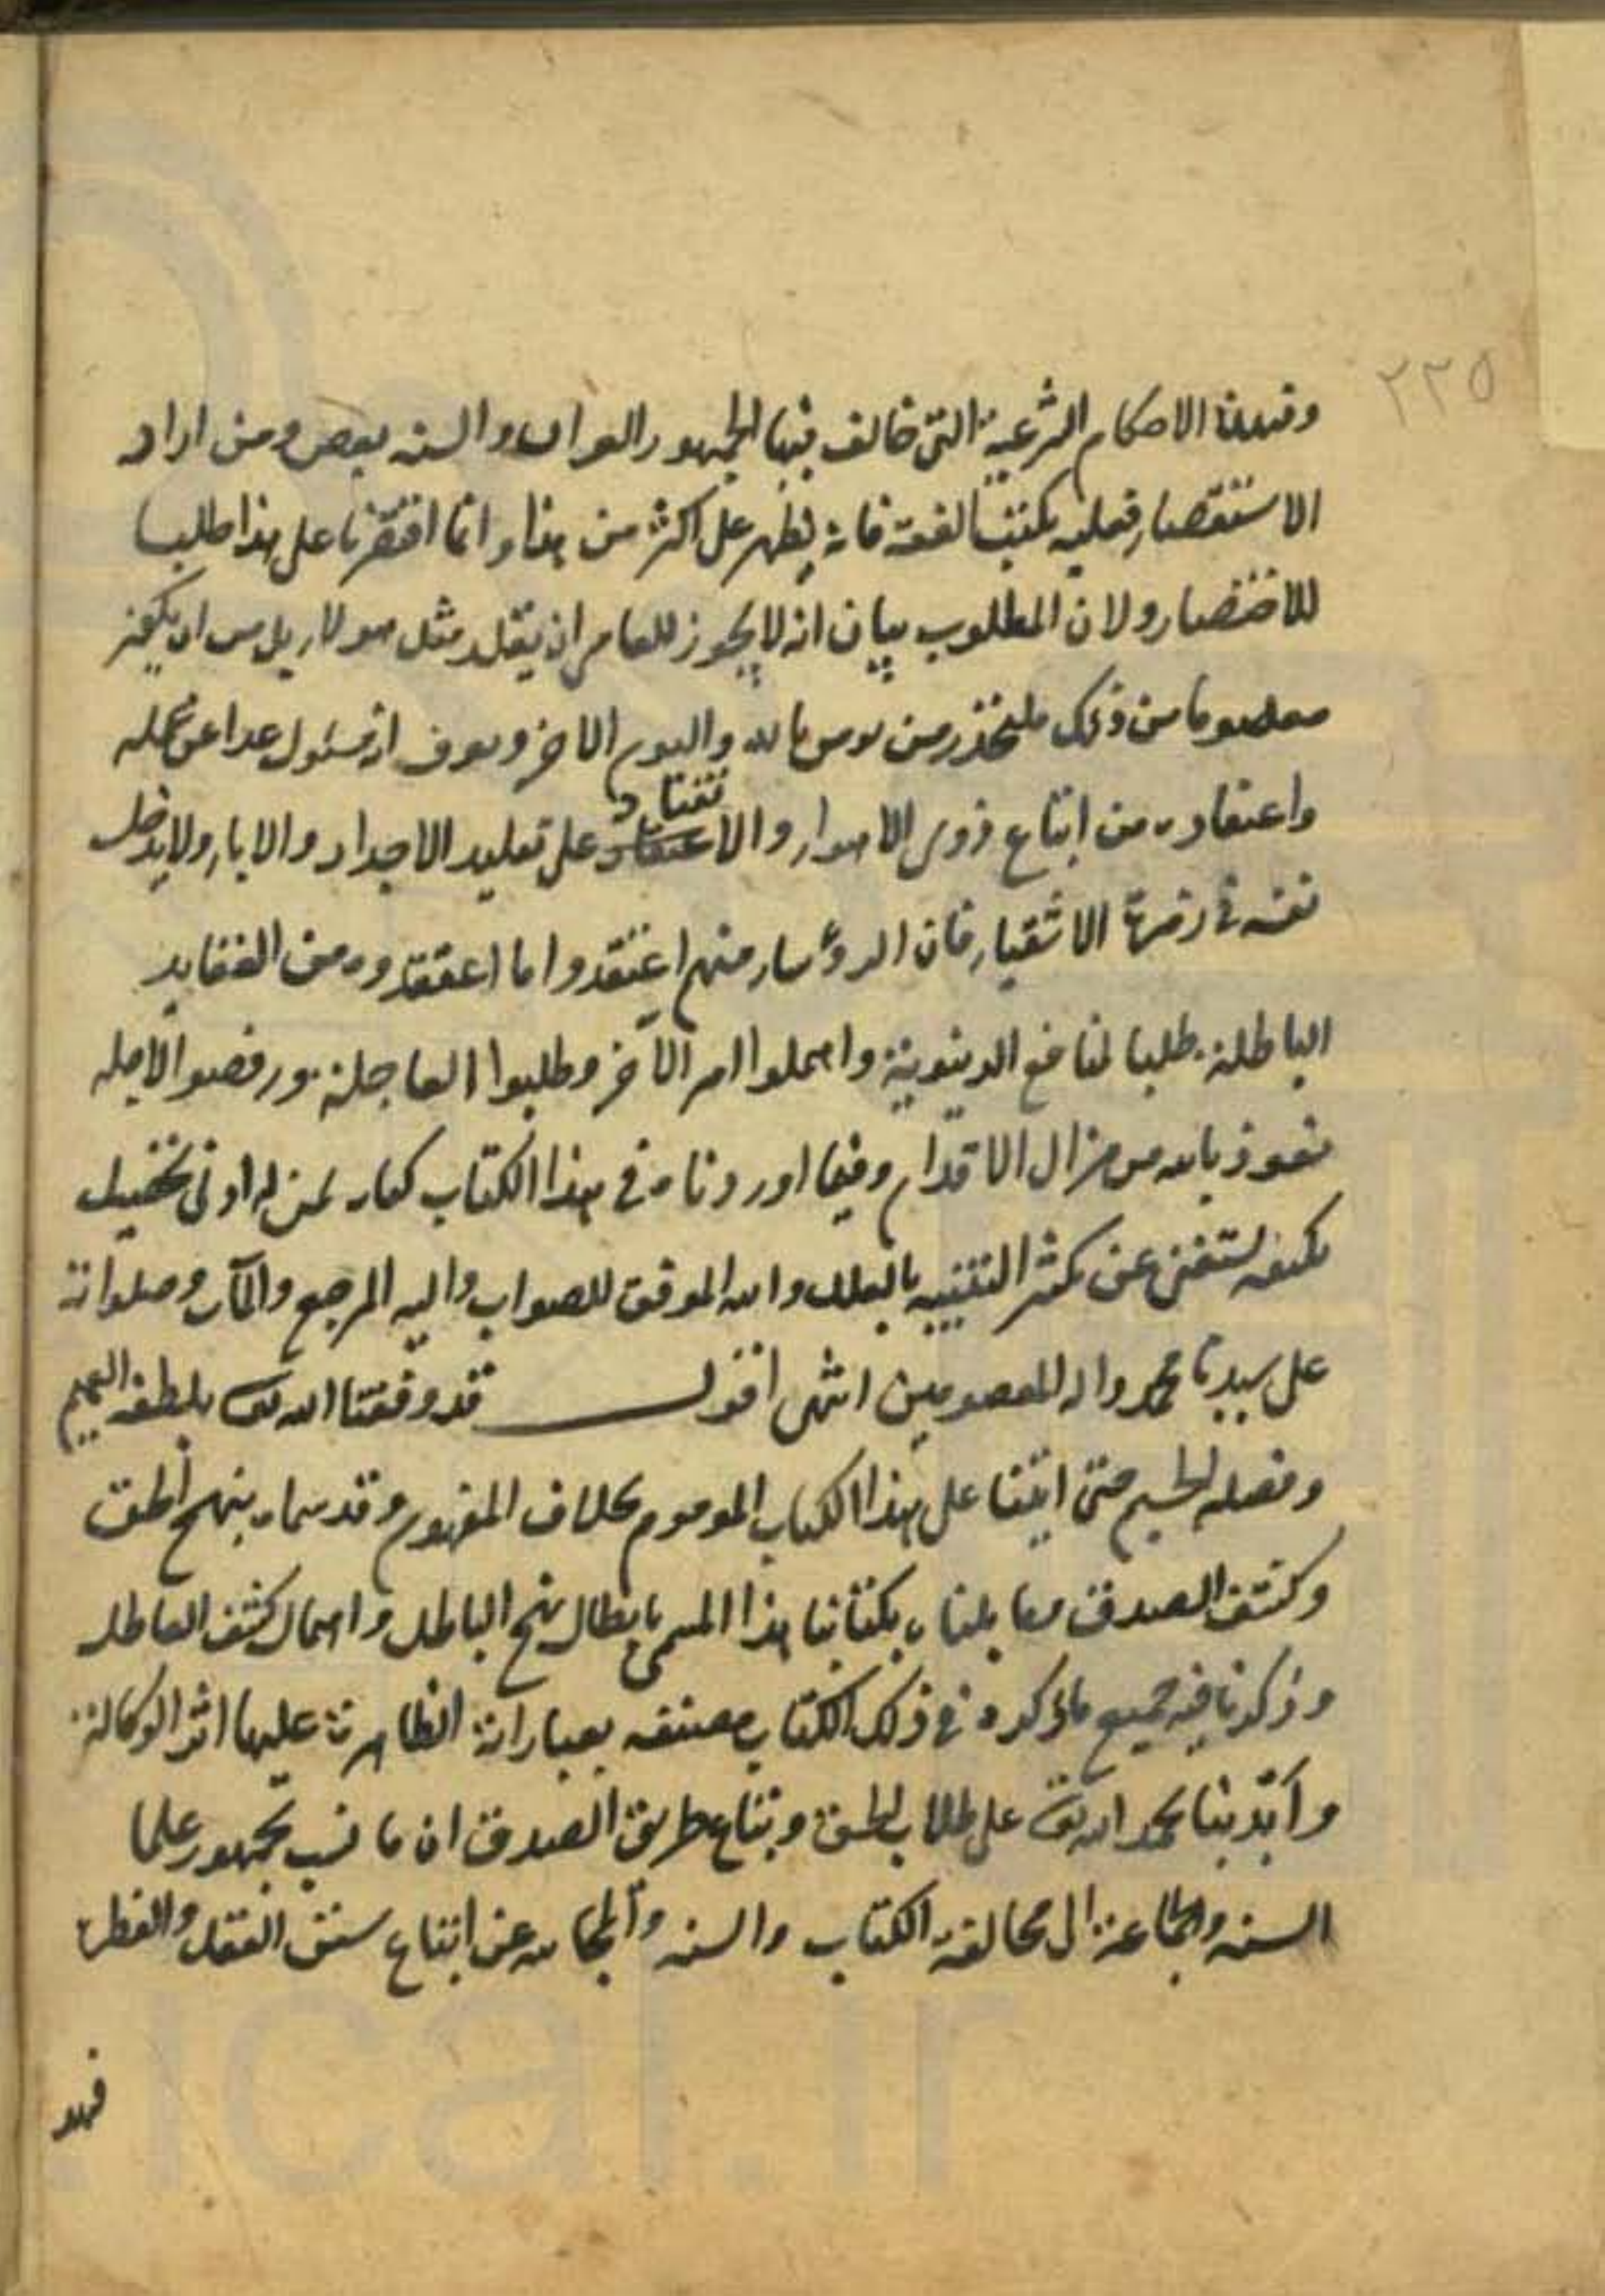 ٢٢٥
الاحكام الشرعية التى خالف فيها الجمهور القران والسنه ومن اراد
الاستقصار فعليه بكتب الفقه فانه يظهر على اكثر من هذا و انما اقتصرنا على هذا طلبا
للاختصار ولان المطلوب بيان انه لا يجوز للعامى ان يقلد مثل هولار بل من
من ذلك فليحذر من يومن بالله واليوم الاخر ويعرف انه مسئول غدا عن عمله
واعتقاده من اتباع ذوى الاهوار والاعتقاد على تقليد الاجداد والابار ولا يدخل
نفسه فى زمرة الاشقيار فان الروءسار منهم اعتقدوا ما اعتقدوه من العقايد
الباطلة طلبا لمنافع الدينوية واهملوا امر الآخر وطلبوا العاجلة ورفضوا الاجله
نعوذ بالله من مزال الاقدام وفيما اوردناه فى هذا الكتاب كفايه لمن له ادنى تحصيل
يستغنى عن كثر التنبيه بالعلل والله الموفق للصواب واليه المرجع والمآب وصلواته
على سيدنا محمد واله المعصومين انتهى اقول قد وفقنا الله تعالى بلطفه العميم
وفضله الجسيم حتى اتينا على هذا الكتاب الموهوم بخلاف المفهوم وقد سماه بنهج الحق
وكشف الصدق مقابلناه بكتابنا هذا المسمى بابطال نهج الباطل واهمال كشف العاطل
وذكرنا فيه جميع ما ذكره فى ذلك الكتاب مصنفه بعباراته الظاهرة عليها اثر
بحمد الله تعالى على طلاب الحق وتباع طريق الصدق ان ما نسب بجمهور علما
السنه والجماعة الى مخالفة الكتاب والسنه عن اتباع سنن العقل والفطره
فهو